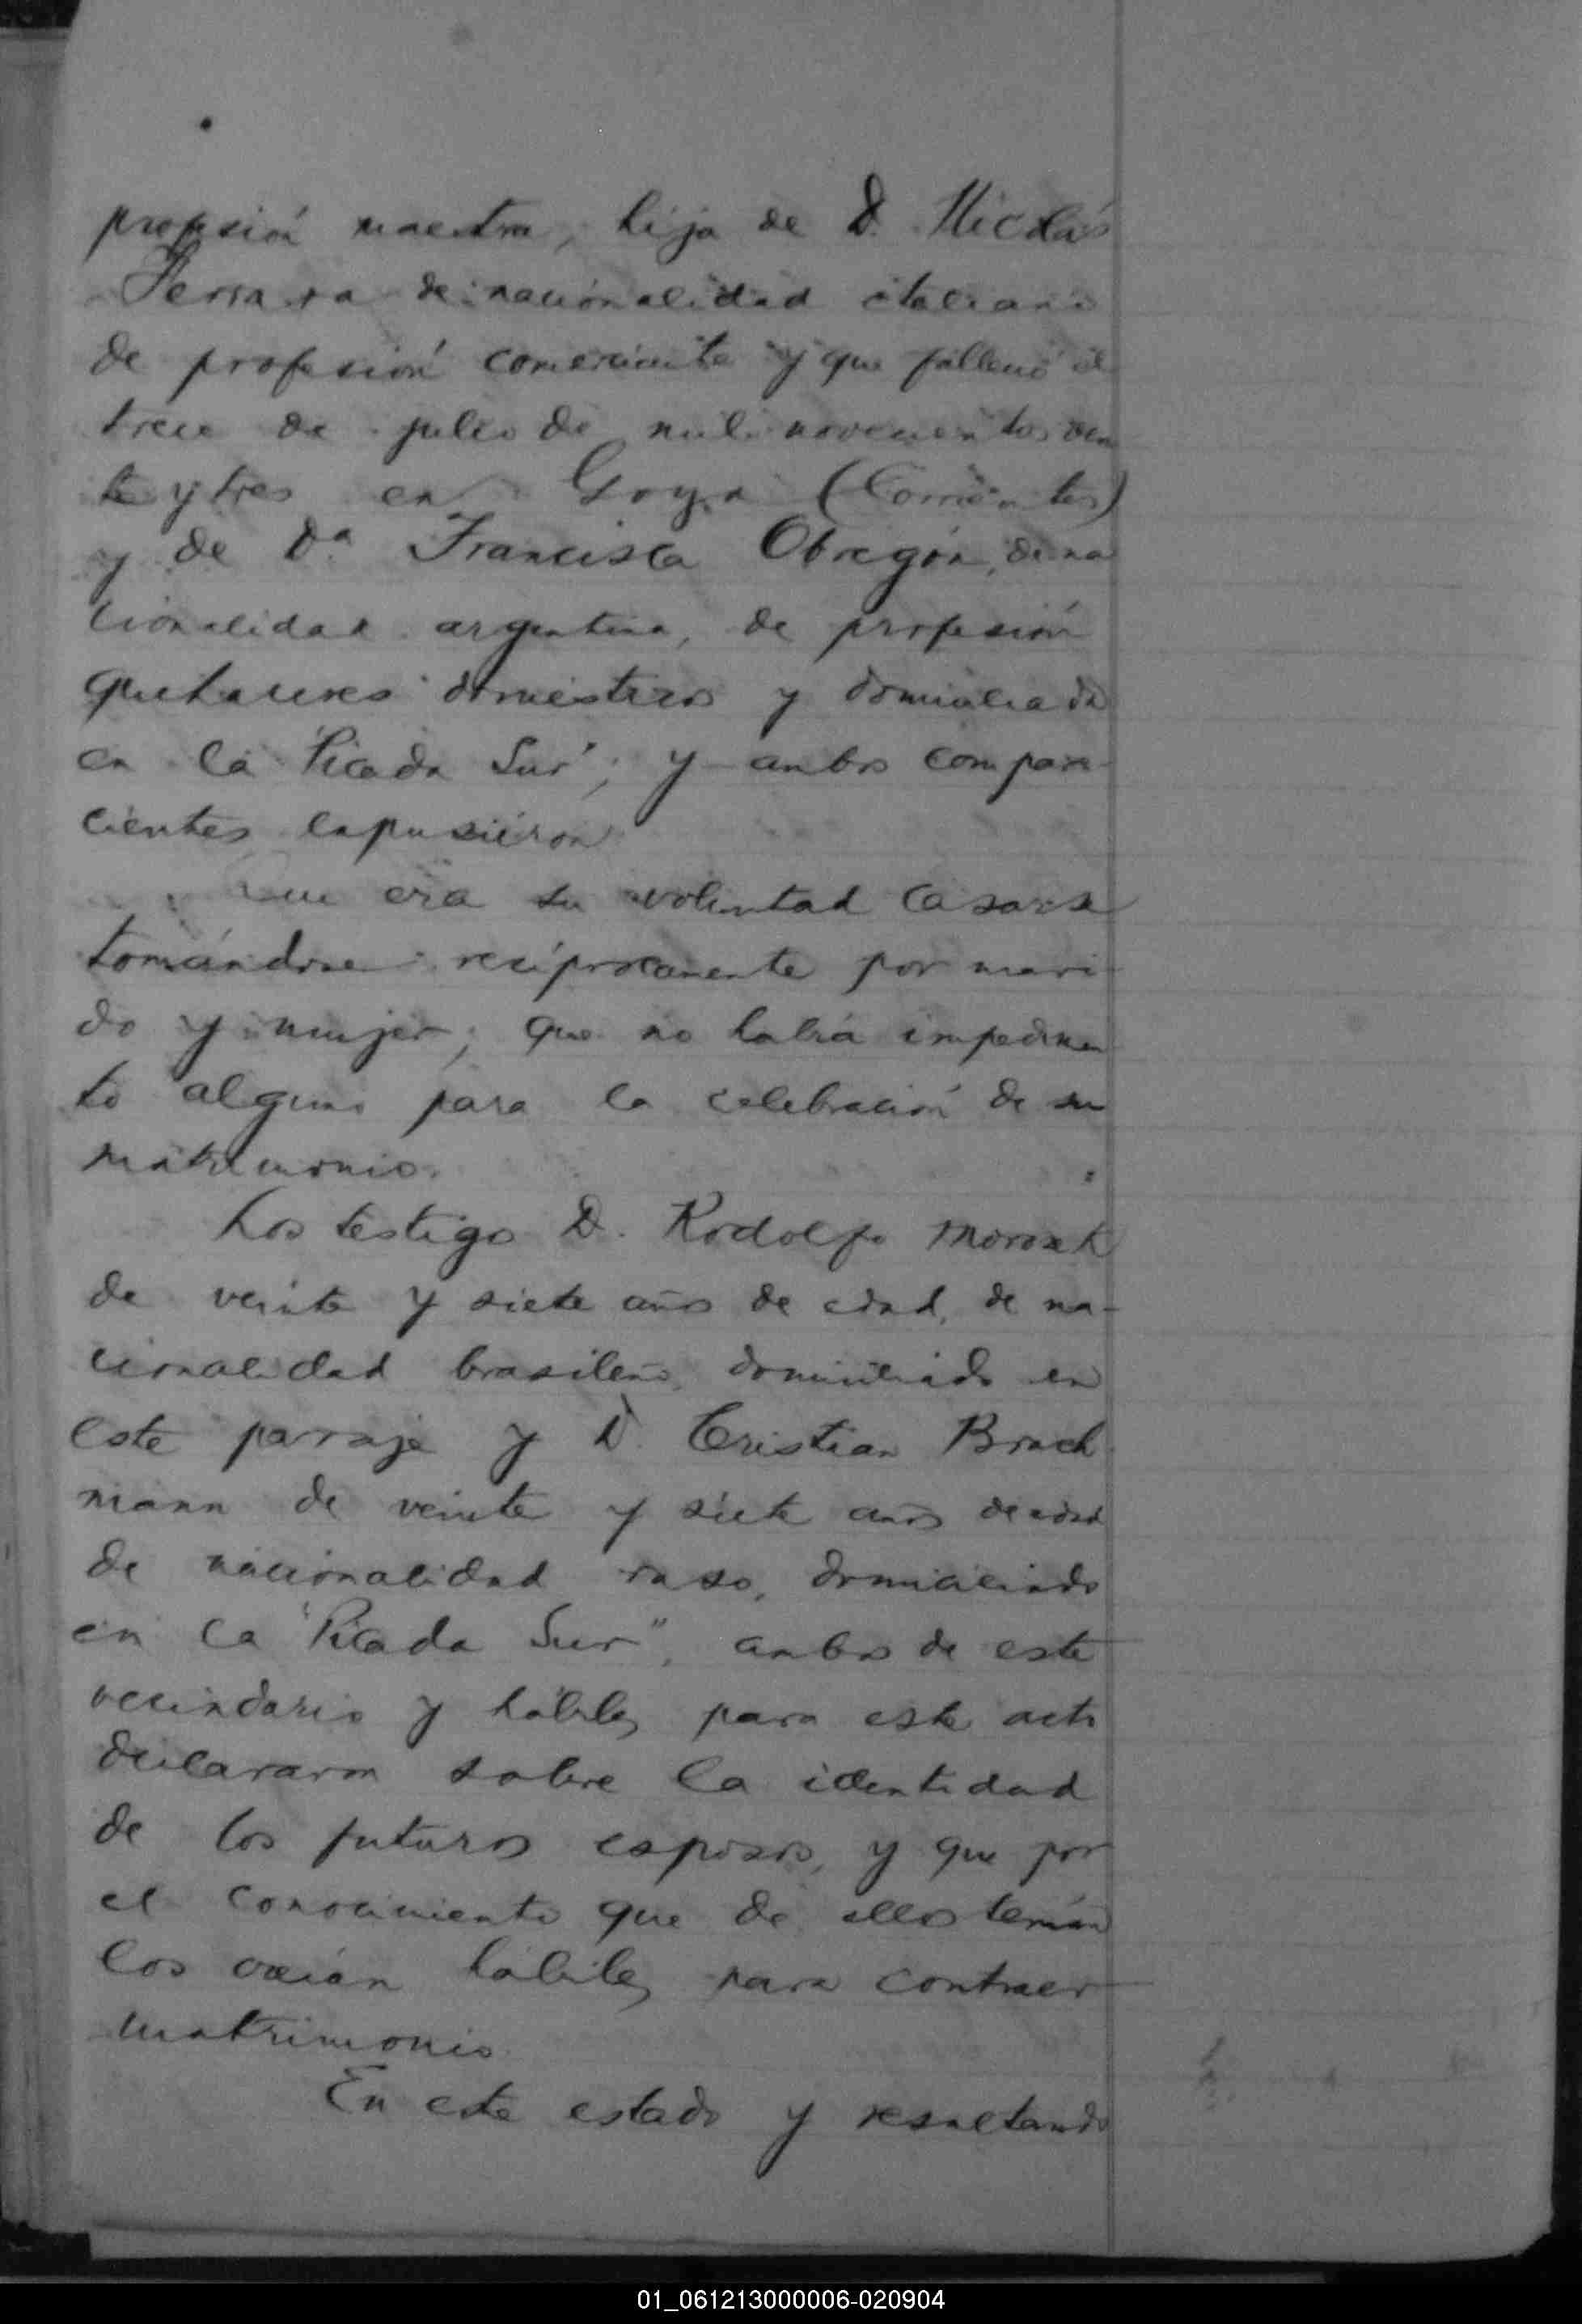 profesión maestra, hija de D. Nicolás
Ferrara de nacionalidad italiana
de profesión comerciante y que falleció el
trece de julio de mil novecientos vein
te y tres en Goya (Corrientes)
y de Dª Francisca Obregón, de na
cionalidad argentina, de profesión
quehaceres domésticos y domiciliada
en la "Picada Sur"; y ambos compare-
cientes expusieron
Que era su voluntad casarse
tomándose recíprocamente por mari-
do y mujer; que no había impedimen
to alguno para la celebración de su
matrimonio.
Los testigo D. Rodolfo
de veinte y siete años de edad, de na-
cionalidad brasileño, domiciliado en
este paraje y D. Cristian Brach
mann de veinte y siete años de edad
de nacionalidad ruso, domiciliado
en la "Picada Sur", ambos de este
vecindario y hábiles para este acto
declararon sobre la identidad
de los futuros esposos, y que por
el conocimiento que de ellos tenían
los creían hábiles para contraer
matrimonio.
En este estado y resultando
01_061213000006-020904